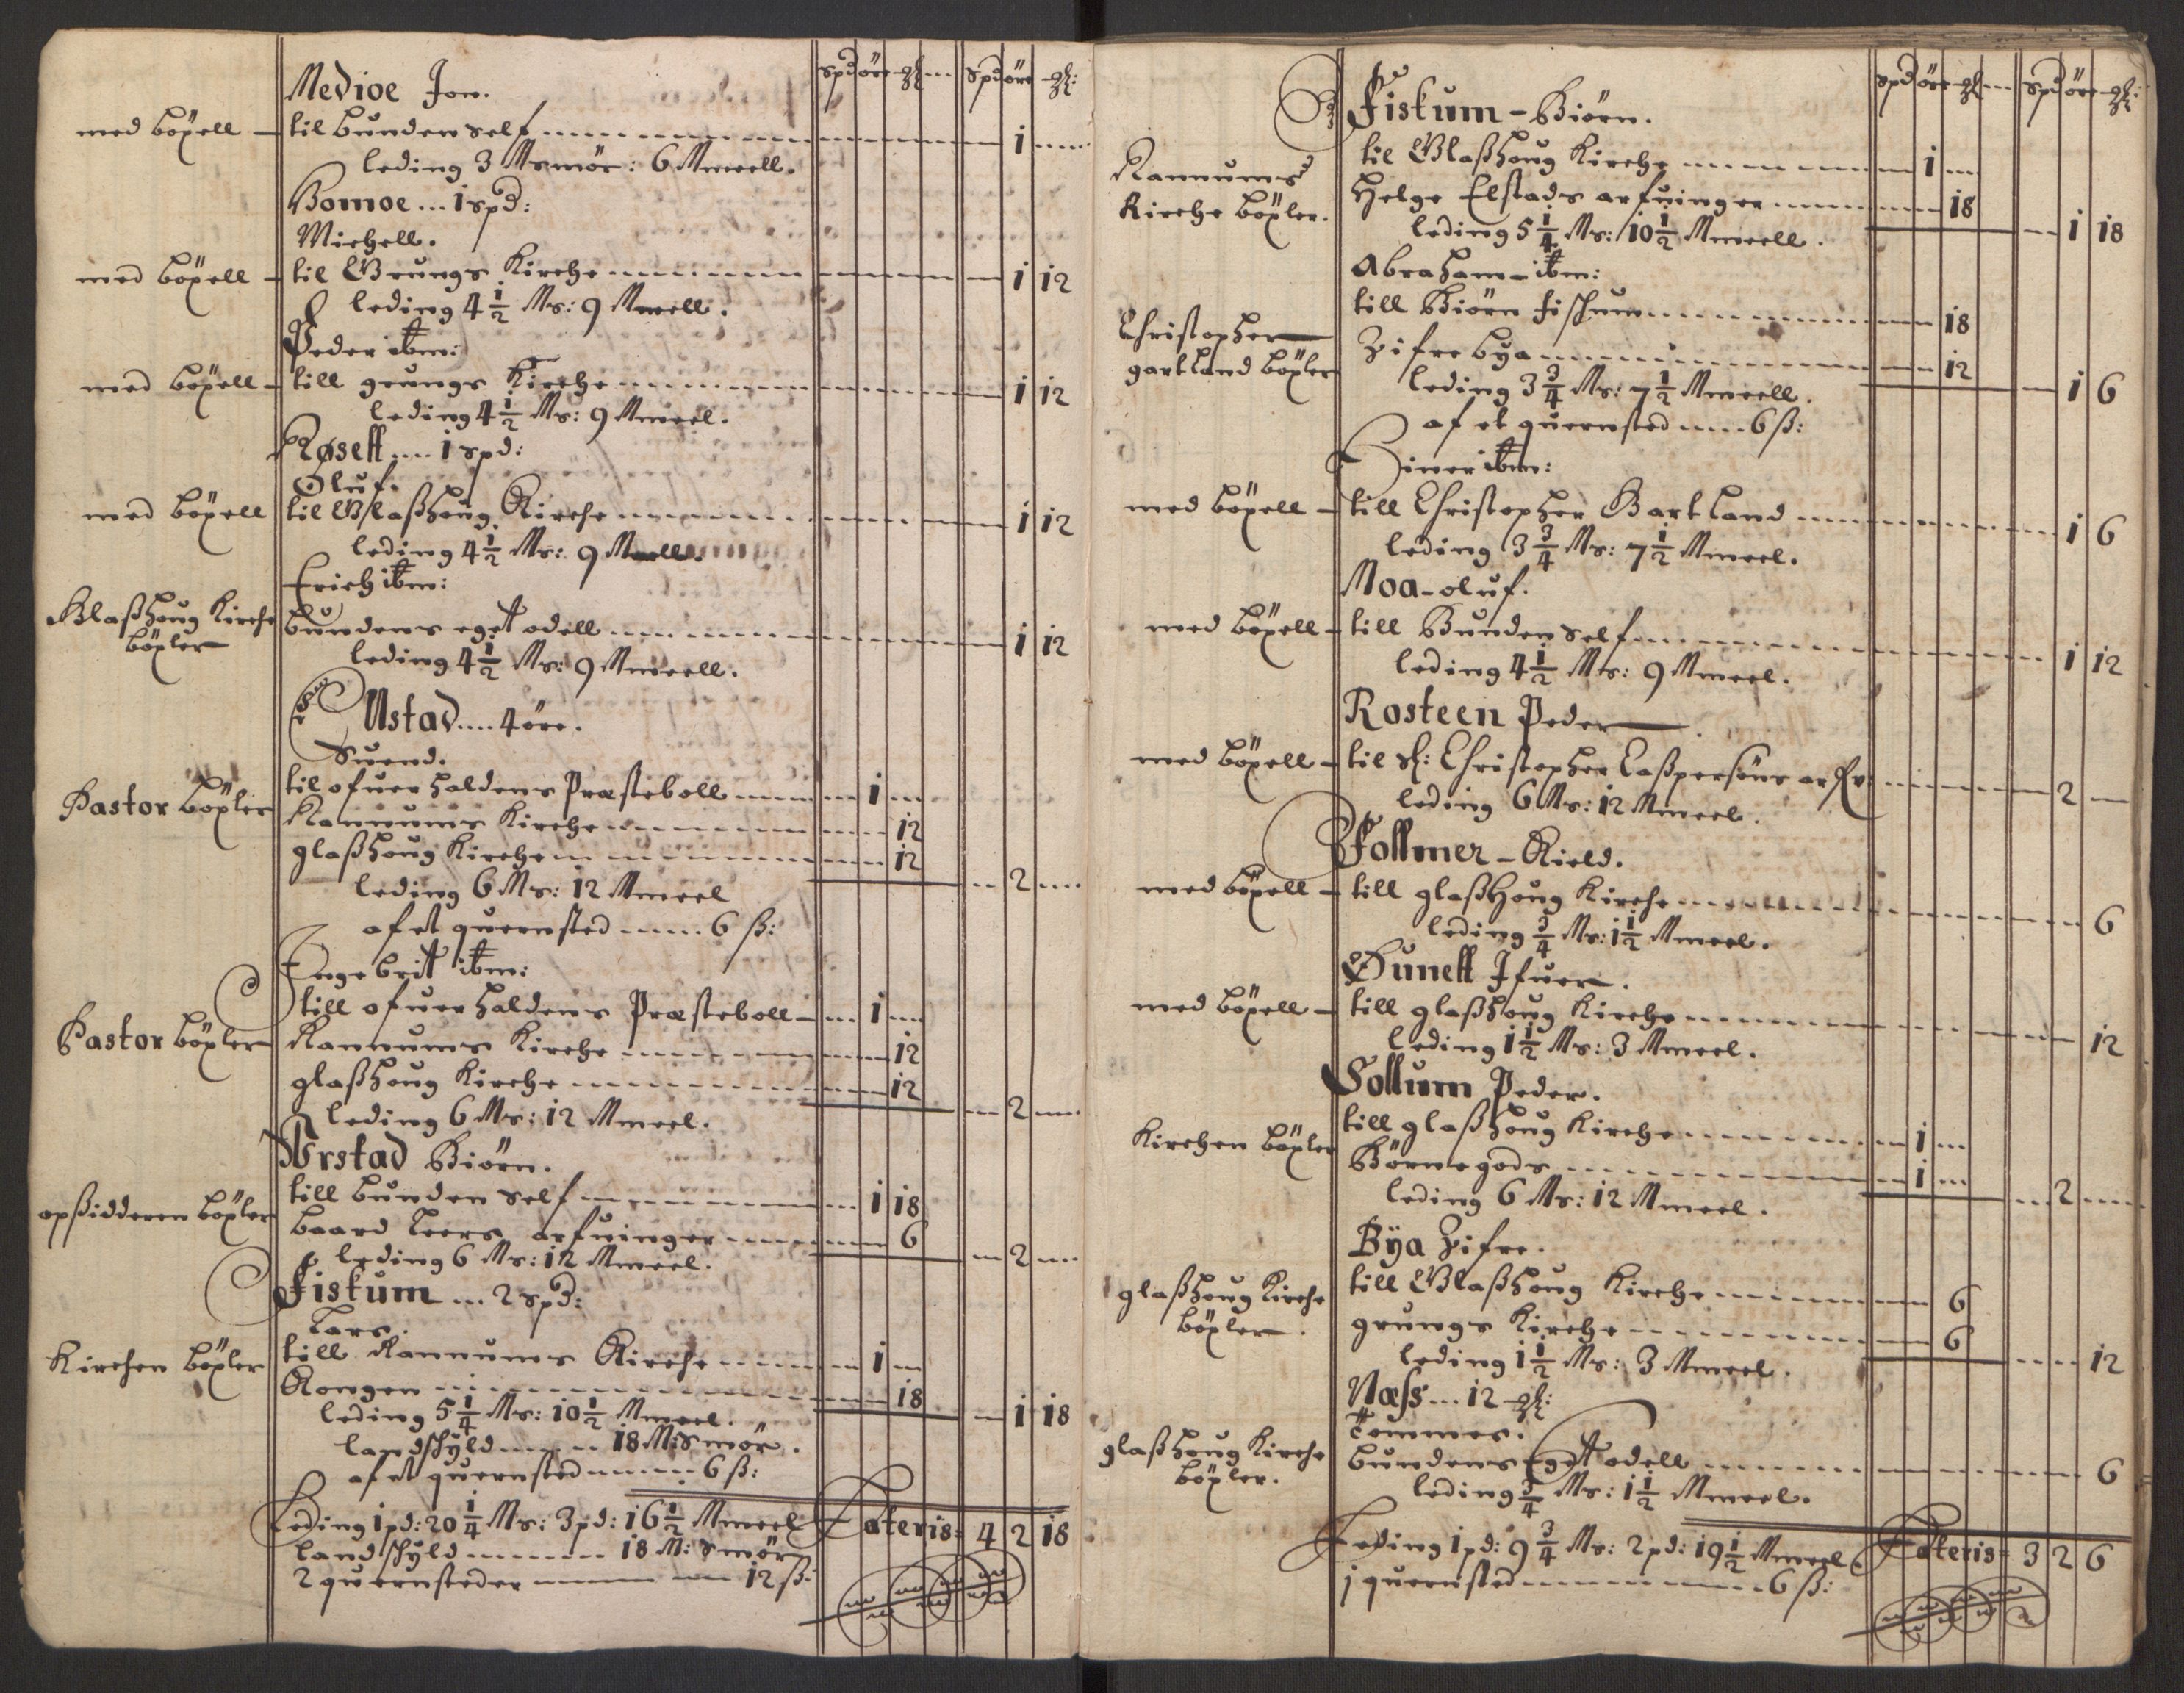 spd öre gl: spd öre gl:
Medioe Jon.
med böxell – til bunden self ... 1 ...
leding 3 Msmör: 6 Mmeell.
Homoe ... 1 spd:
Michell.
med böxell – til Grungs Kirche ... 1 12
leding 4 1/2 Ms: 9 Mmeell.
Peder ibm:
med böxell – till grungs Kirche ... 1 12
leding 4 1/2 Ms: 9 Mmeel.
Røsett .... 1 spd:
Oluf.
med böxell til Glaßhoug Kirche ... 1 12
leding 4 1/2 Ms: 9 Mmell.
Erich ibm:
Glaßhoug Kirche böxler bundens eget odell ... 1 12
leding 4 1/2 Ms: 9 Mmeell.
Ustad .... 4 öre.
Suend.
Pastor böxler til ofuerhaldens Præsteboll ... 1 ...
Rannums Kirche ... 12
glaßhoug Kirche ... 12
leding 6 Ms: 12 Mmeel ... 2 ...
af et quernsted ..... 6 ß:
Engebrit ibm:
till ofuerhaldens Præsteboll – ... 1 ...
Pastor böxler Rannums Kirche ... 12
glaßhoug Kirche ... 12
leding 6 Ms: 12 Mmeel. ... 2 ...
Wrstad Biörn.
opßidderen böxler till bunden self ... 1 18
baard Leers arfuinger ... 6
leding 6 Ms: 12 Mmeel. ... 2 ...
Fiskum ... 2 spd:
Lars.
Kirchen böxler till Rannums Kirche ... 1 ...
Kongen ... 18
leding 5 1/4 Ms: 10 1/2 Mmeel. ... 1 18
landschyld ... 18 M: Smör.
af et quernsted ... 6 ß:
Leding 1 pd: 20 1/4 Ms: 3 pd: 16 1/2 Mmeel Lateris: 4 2 18
landschyld ... 18 M: Smör
2 quernsteder ... 12 ß:
spd öre gl: spd öre gl:
Fiskum – Biörn.
Rannums Kirche böxler. til Glaßhoug Kirche ... 1 ...
Helge Elstads arfuinger ... 18
leding 5 1/4 Ms: 10 1/2 Mmeell. ... 1 18
Abraham – ibm:
till Biörn fischum ... 18
Christopher gartland böxler Zifre bya ... 12
leding 3 3/4 Ms: 7 1/2 Mmeell. ... 1 6
af et quernsted .... 6 ß:
Einer ibm:
med böxell – till Christopher Gartland ... 1 6
leding 3 3/4 Ms: 7 1/2 Mmeel.
Moa – oluf.
med böxell – till Bunden self ... 1 12
leding 4 1/2 Ms: 9 Mmeel.
Rosteen Peder.
med böxell – til Christopher Caßpersöns arfv: ... 2 –
leding 6 Ms: 12 Mmeel.
Follmer – Kield.
med böxell – till glaßhoug Kirche ... 6
leding 3/4 Ms: 1 1/2 Mmeel.
Dunett Ifuer.
med böxell – till glaßhoug Kirche ... 12
leding 1 1/2 Ms: 3 Mmeel.
Sollum Peder.
Kirchen böxler till glaßhoug Kirche ... 1 ...
Börnegods ... 1 ...
leding 6 Ms: 12 Mmeel. ... 2 ...
Bya Zifre.
glaßhoug Kirche böxler. till Glaßhoug Kirche ... 6
grungs Kirche ... 6
leding 1 1/2 Ms: 3 Mmeel. ... 12
Næss ... 12 gl:
Tommes.
glaßhoug Kirche böxler. bundens eget odell ... 6
leding 3/4 Ms: 1 1/2 Mmeel.
Leding 1 pd: 9 3/4 Ms: 2 pd: 19 1/2 Mmeel Lateris: 3 2 6
1 quernsted ... 6 ß: